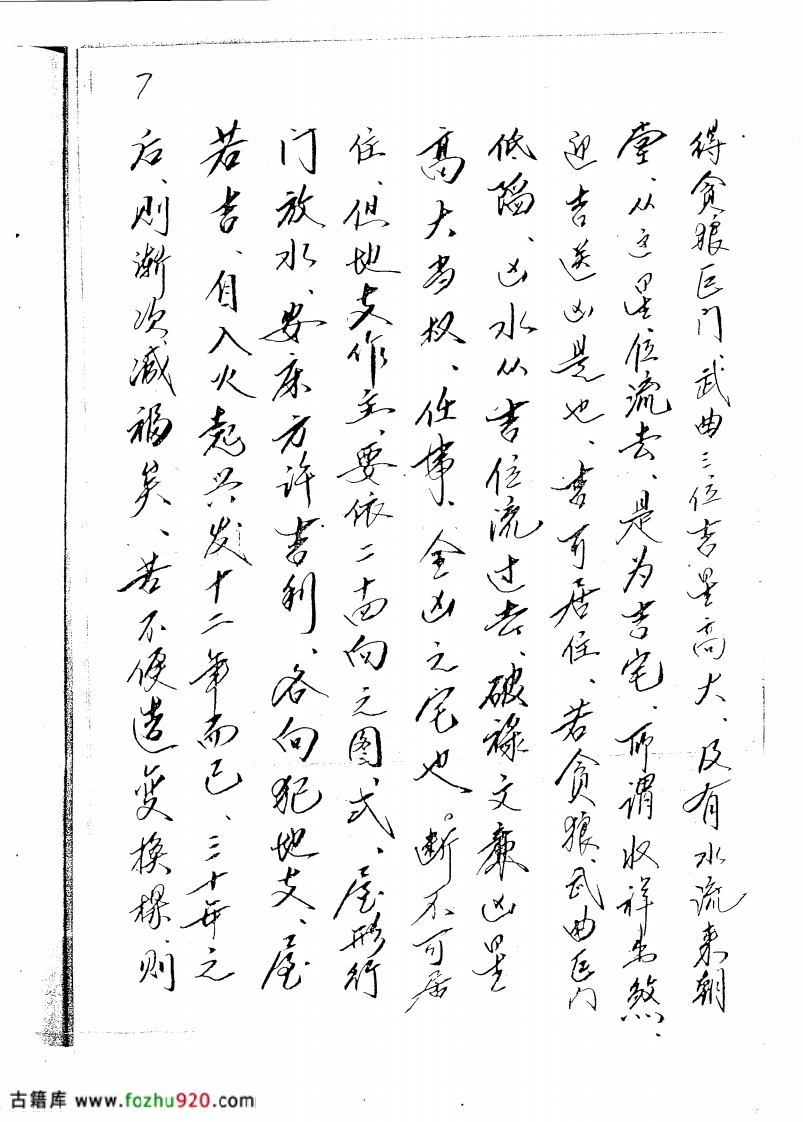 7
得贪狼巨门、武曲三位吉星高大、及有水流来朝
堂、从这星位流去、是为吉宅、所谓收祥出煞、
迎吉送凶是也、吉可居住、若贪狼、武曲巨门
低陷、凶水从吉位流过去、破禄文廉凶星
高大当权、任事、全凶之宅也。断不可居
住、但地支作主、要依二十四向之图式、屋形行
门放水、安床方许吉利、各向犯地支、屋
若吉、自入火起兴发十二年而已、三十年之
后、则渐次减福矣、若不便造变换樑、则
古籍库 www.fozhu920.com